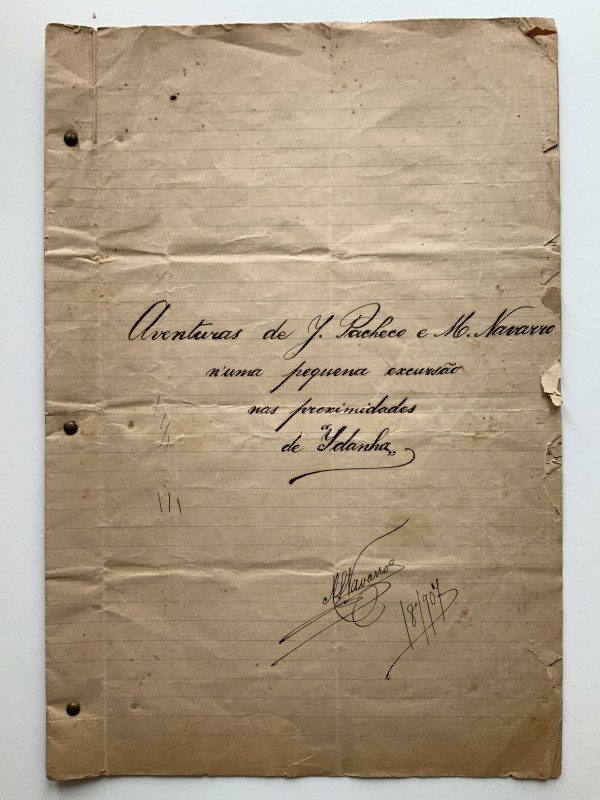 Aventuras de J. Pacheco e M. Navarro
n'uma pequena excursão
nas proximidades
de "Ydanha„
MNavarro